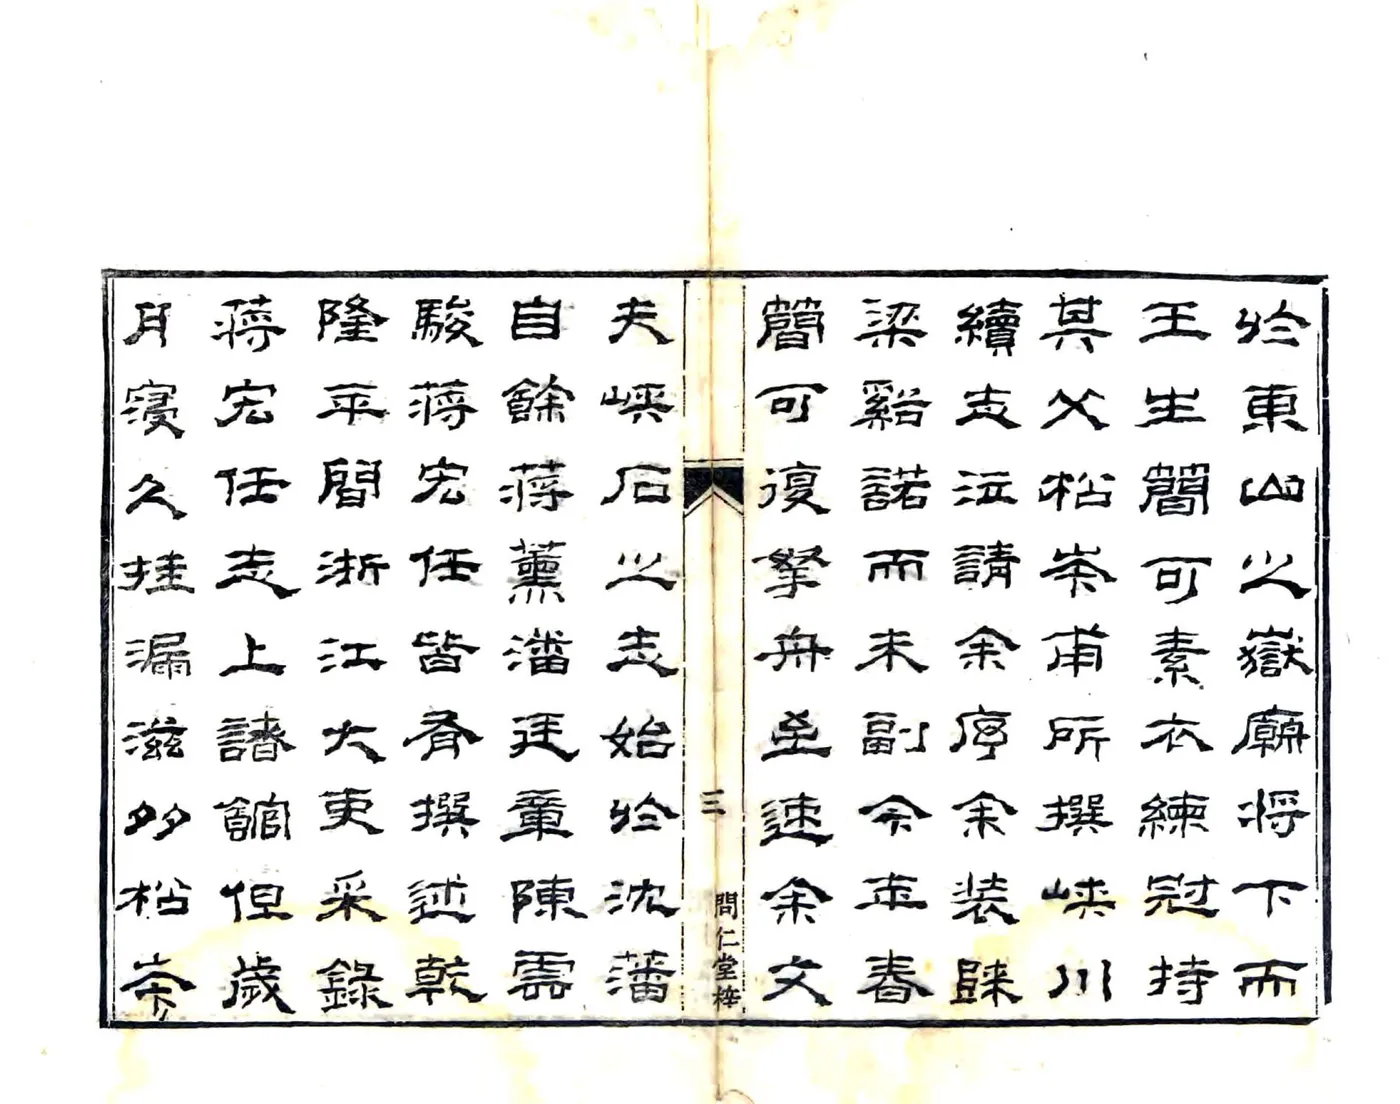 於東山之嶽廟將下而
王生簡可素衣練冠持
其父松岑甫所撰峽川
續志泣請余序余裝歸
梁谿諾而未副今年春
簡可復拏舟至速余文
三
問仁堂梓
夫峽石之志始於沈藩
自餘蔣薰潘廷章陳雲
駿蔣宏任皆有撰述乾
隆年間浙江大吏采錄
蔣宏任志上諸館但歲
月寖久挂漏滋多松岑